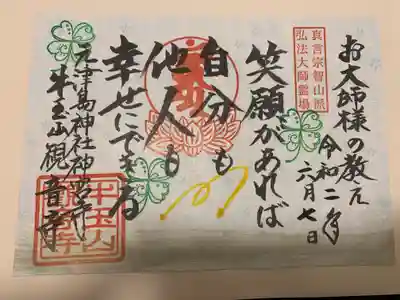 お大師様の教え
令和二年
六月七日
真言宗智山派
弘法大師霊場
笑顔があれば
自分も
他人も
幸せにできる
元津島神社神宮寺
牛玉山観音寺
牛玉山
観音寺